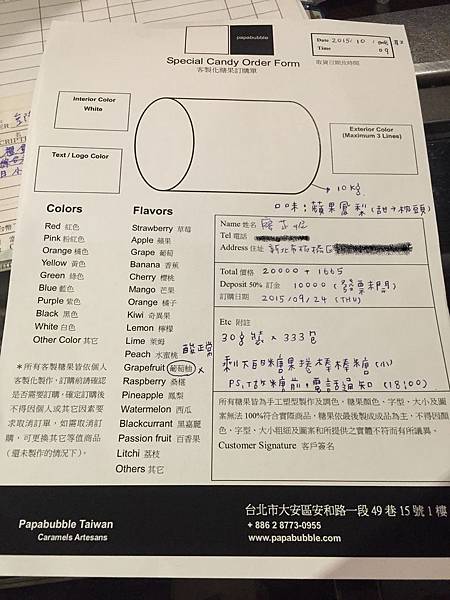 papabubble
Date 2015/10/
Time 09
Special Candy Order Form
客製化糖果訂購單
取貨日期及時間
Interior Color
White
Exterior Color
(Maximum 3 Lines)
Text / Logo Color
10kg
口味:蘋果鳳梨(甜→初頭)
Colors
Red 紅色
Pink 粉紅色
Orange 橘色
Yellow 黃色
Green 綠色
Blue 藍色
Purple 紫色
Black 黑色
White 白色
Other Color 其它
Flavors
Strawberry 草莓
Apple 蘋果
Grape 葡萄
Banana 香蕉
Cherry 櫻桃
Mango 芒果
Orange 橘子
Kiwi 奇異果
Lemon 檸檬
Lime 萊姆
Peach 水蜜桃
酸正常
Grapefruit 葡萄柚 ×
Raspberry 桑椹
Pineapple 鳳梨
Watermelon 西瓜
Blackcurrant 黑嘉麗
Passion fruit 百香果
Litchi 荔枝
Others 其它
*所有客製糖果皆依個人
客製化製作,訂購前請確認
是否需要訂購,確定訂購後
不得因個人或其它因素要
求取消訂單,如需取消訂
購,可更換其它等值商品
(還未製作的情況下)。
Name 姓名
Tel 電話
Address 住址 新北市板橋區
Total 價格 20000 + 1665
Deposit 50% 訂金 10000 (發票未開)
訂購日期 2015/09/24 (THU)
Etc 附註
30g 裝 × 333 包
剩下的糖果捲棒棒糖(小)
PS.
糖前,電話通知 (18:00)
所有糖果皆為手工塑型製作及調色,糖果顏色、字型、大小及圖
案無法 100%符合實際商品,糖果依最後製成成品為主,不得因顏
色、字型、大小粗細及圖案和所提供之實體不符而有所議異。
Customer Signature 客戶簽名
Papabubble Taiwan
Caramels Artesans
台北市大安區安和路一段 49 巷 15 號 1 樓
+ 886 2 8773-0955
www.papabubble.com